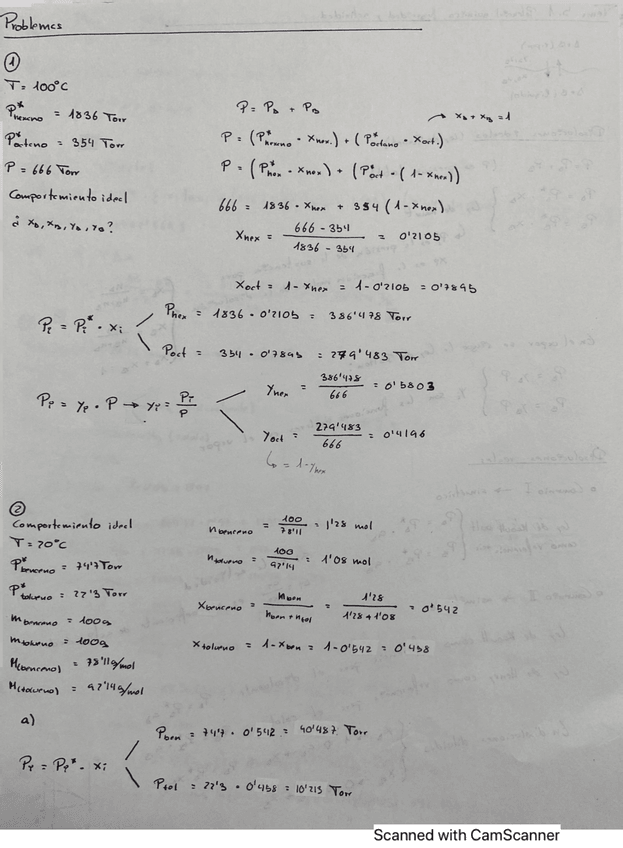 Problemas
①
T = 100°C
P*hexano = 1836 Torr
P*octano = 354 Torr
P = 666 Torr
Comportamiento ideal
¿ xA, xB, yA, yB?
P = PA + PB
xA + xB = 1
P = (P*hexano · xhex.) + (P*octano · xoct.)
P = (P*hex · xhex) + (P*oct · (1 - xhex))
666 = 1836 · xhex + 354 (1 - xhex)
xhex = (666 - 354) / (1836 - 354) = 0'2105
xoct = 1 - xhex = 1 - 0'2105 = 0'7895
Pi = Pi* · xi
Phex = 1836 · 0'2105 = 386'478 Torr
Poct = 354 · 0'7895 = 279'483 Torr
Pi = yi · P → yi = Pi / P
yhex = 386'478 / 666 = 0'5803
yoct = 279'483 / 666 = 0'4196
↳ = 1 - yhex
②
Comportamiento ideal
T = 20°C
P*benceno = 74'7 Torr
P*tolueno = 22'3 Torr
mbenceno = 100g
mtolueno = 100g
M(benceno) = 78'11g/mol
M(tolueno) = 92'14g/mol
nbenceno = 100 / 78'11 = 1'28 mol
ntolueno = 100 / 92'14 = 1'08 mol
xbenceno = nben / (nben + ntol) = 1'28 / (1'28 + 1'08) = 0'542
xtolueno = 1 - xben = 1 - 0'542 = 0'458
a)
Pi = Pi* · xi
Pben = 74'7 · 0'542 = 40'487 Torr
Ptol = 22'3 · 0'458 = 10'213 Torr
Scanned with CamScanner